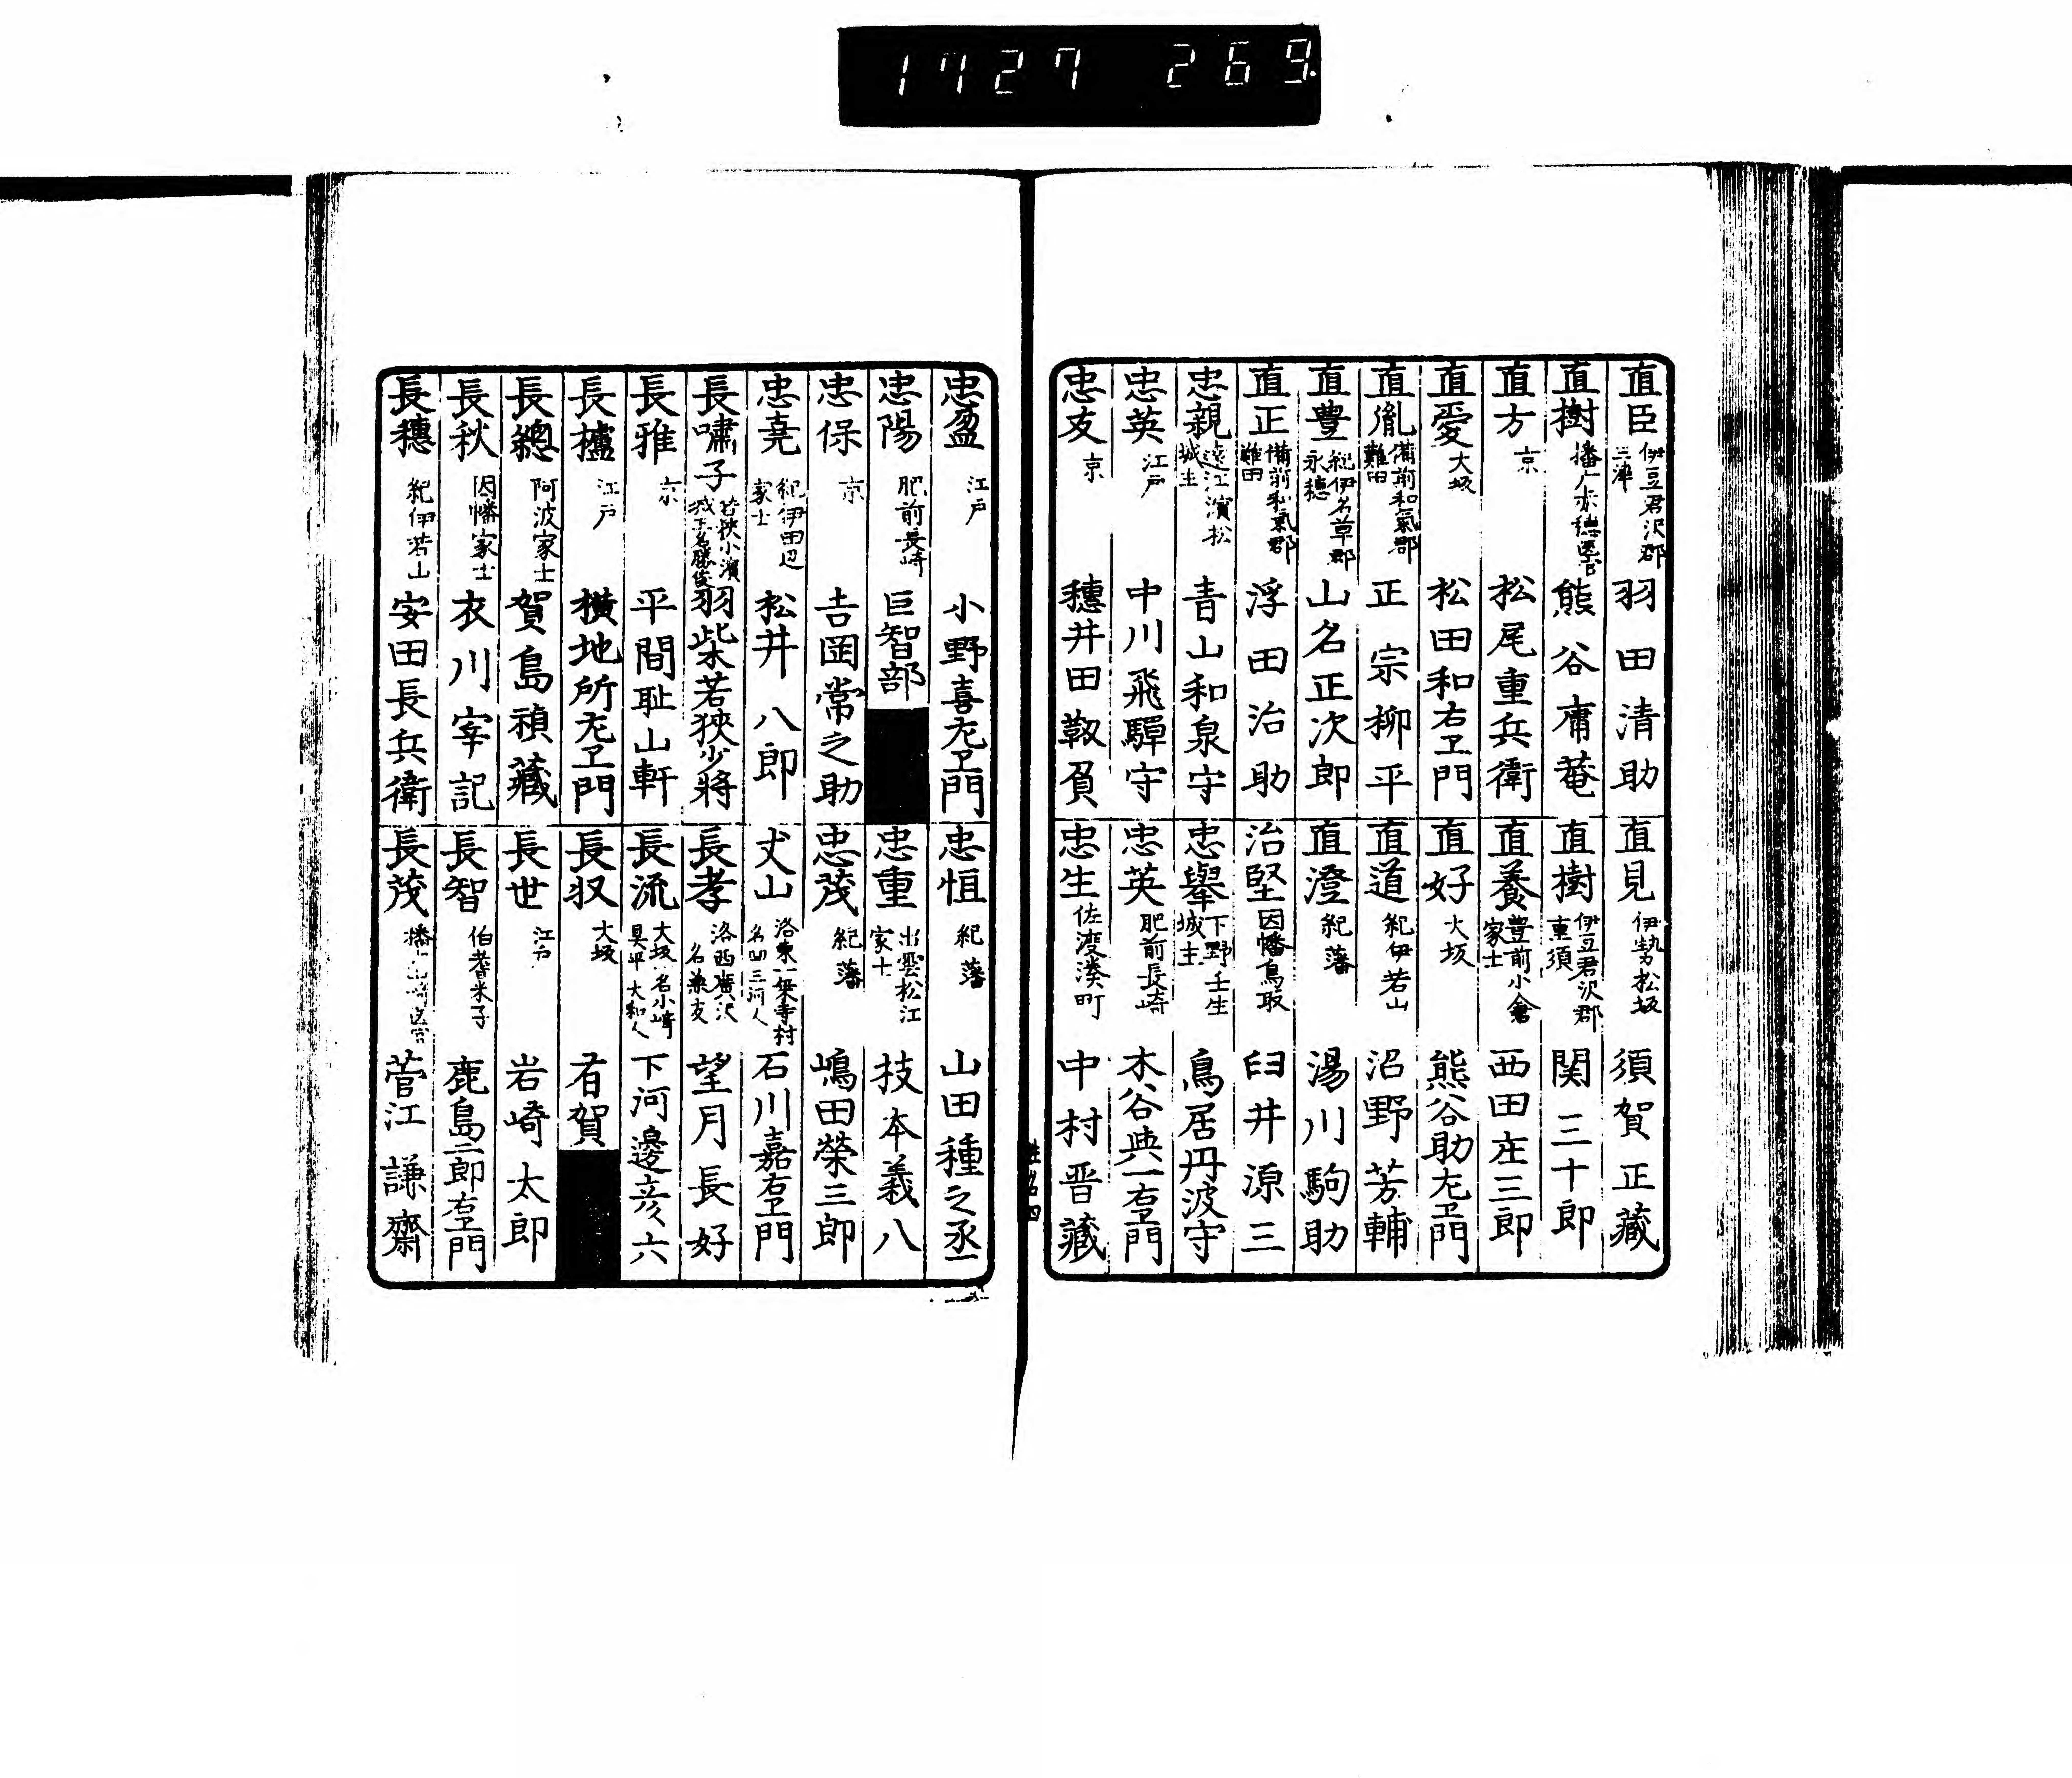 1727 269
直臣 伊豆君沢郡三津 羽田清助
直樹 播广赤穂医官 熊谷庸菴
直方 京 松尾重兵衛
直愛 大坂 松田和右エ門
直胤 備前和氣郡難田 正宗柳平
直豊 紀伊名草郡永穂 山名正次郎
直正 備前和氣郡難田 浮田治助
忠親 遠江濱松城主 青山和泉守
忠英 江戸 中川飛騨守
忠友 京 穗井田靱負
直見 伊勢松坂 須賀正藏
直樹 伊豆君沢郡重須 関三十郎
直養 豊前小倉家士 西田庄三郎
直好 大坂 熊谷助左エ門
直道 紀伊若山 沼野芳輔
直澄 紀藩 湯川駒助
治堅 因幡鳥取 臼井源三
忠舉 下野壬生城主 鳥居丹波守
忠英 肥前長崎 木谷與一右エ門
忠生 佐渡湊町 中村晋藏
姓名四
忠盈 江戸 小野喜左エ門
忠陽 肥前長崎 巨智部
忠保 京 吉岡常之助
忠堯 紀伊田辺家士 松井八郎
長嘯子 若狹小濱城主名勝俊 羽柴若狹少將
長雅 京 平間耻山軒
長櫨 江戸 横地所左エ門
長總 阿波家士 賀島禎藏
長秋 因幡家士 衣川宰記
長穗 紀伊若山 安田長兵衛
忠恒 紀藩 山田種之丞
忠重 出雲松江家士 技本義八
忠茂 紀藩 嶋田榮三郎
丈山 洛東一乗寺村名凹三河人 石川嘉右エ門
長孝 洛西廣沢名兼友 望月長好
長流 大坂名小﨑具平大和人 下河邊彦六
長収 大坂 有賀
長世 江戸 岩崎太郎
長智 伯耆米子 鹿島三郎右エ門
長茂 播 菅江謙齋